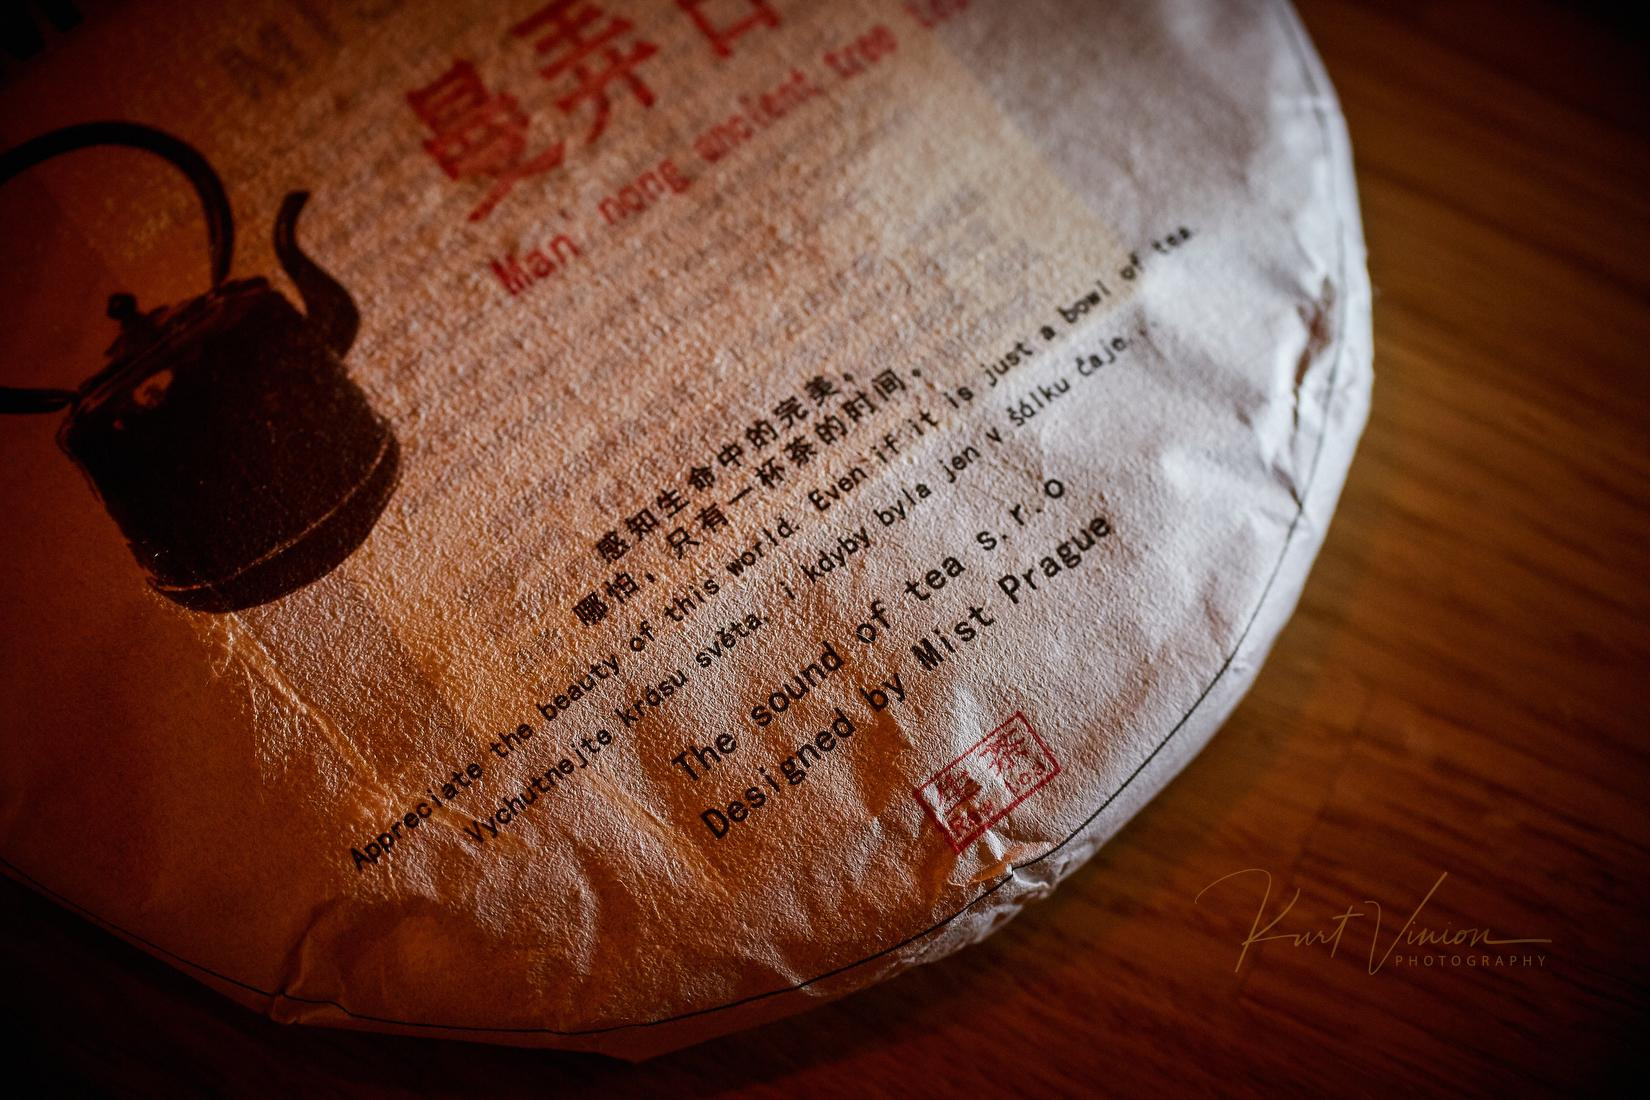 MIS
曼弄
Man' nong ancient tree
感知生命中的完美，
哪怕，只有一杯茶的时间。
Appreciate the beauty of this world. Even if it is just a bowl of tea.
Vychutnejte krásu světa, i kdyby byla jen v šálku čaje.
The sound of tea s.r.o
Designed by Mist Prague
生茶
Kurt Vinion
PHOTOGRAPHY